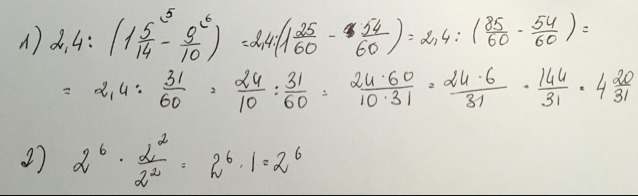 1) 2,4 : (1 5/14 ⁵ - 9/10 ⁶) = 2,4 : (1 25/60 - 54/60) = 2,4 : (85/60 - 54/60) =
= 2,4 : 31/60 = 24/10 : 31/60 = 24·60/10·31 = 24·6/31 = 144/31 = 4 20/31
2) 2⁶ · 2²/2² = 2⁶ · 1 = 2⁶